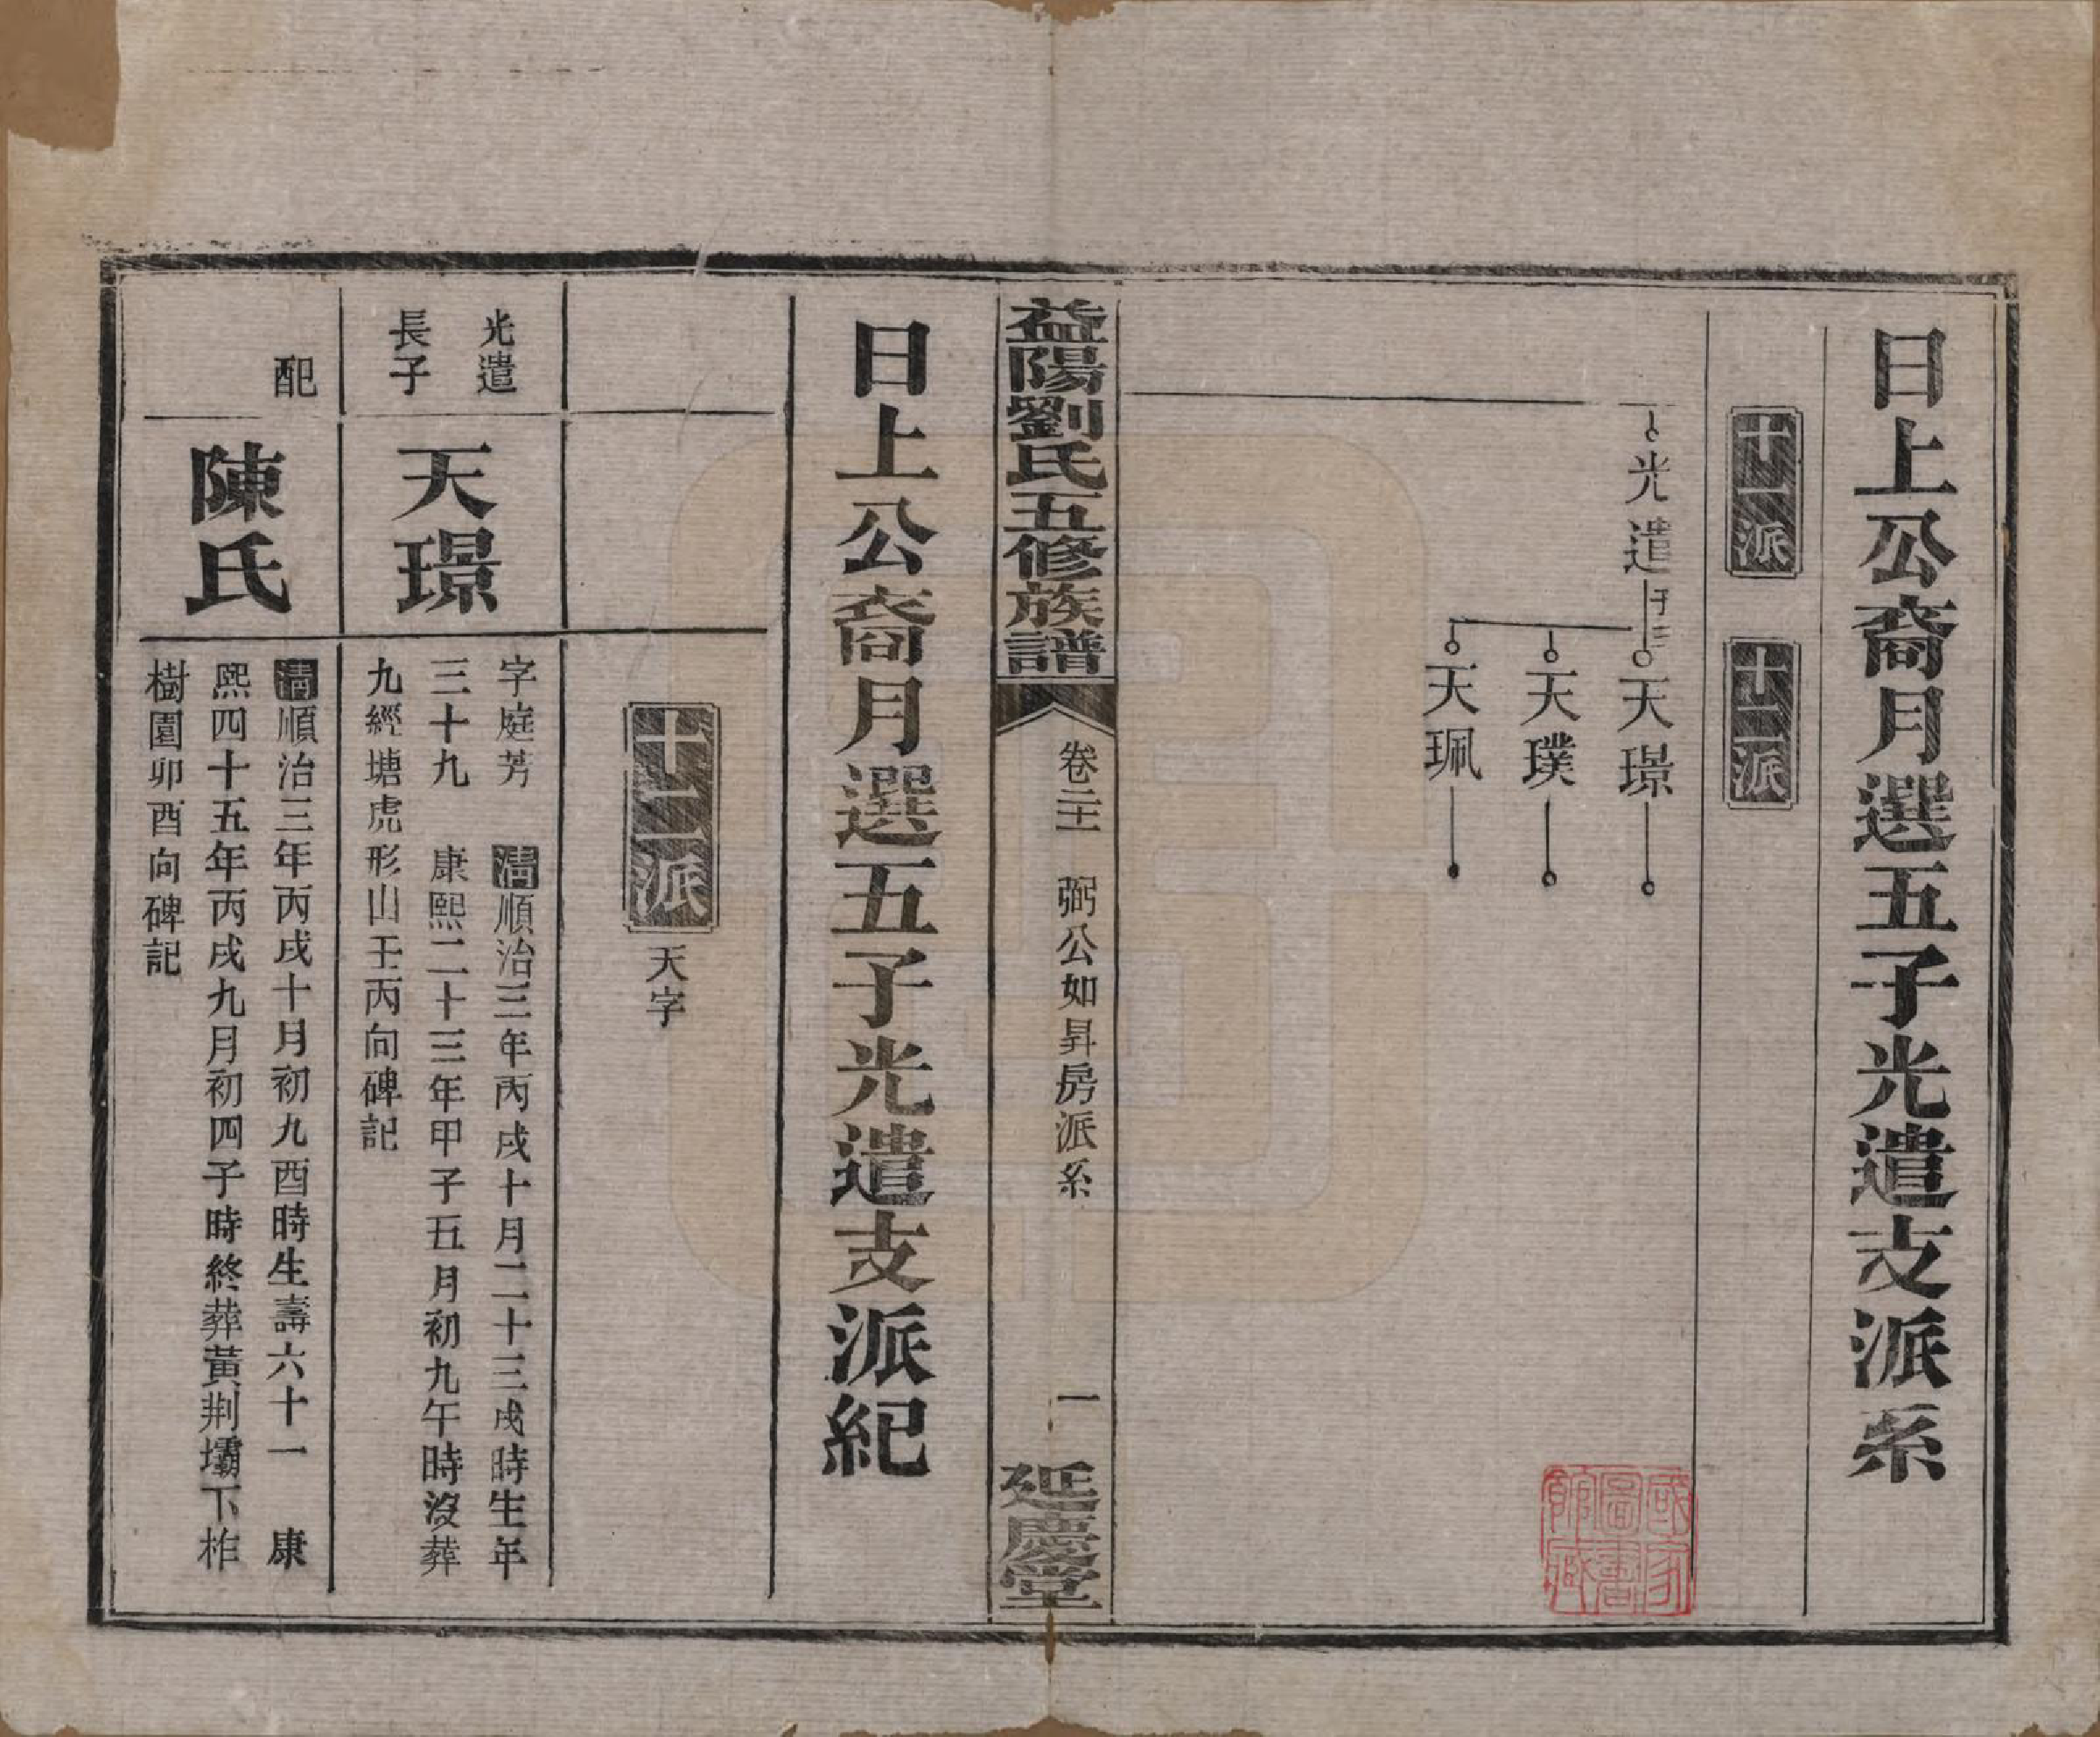 日上公裔月選五子光遣支派系
十一派
十二派
光遣
子三
天璟
天璞
天珮
國家圖書館藏
益陽劉氏五修族譜
卷二十一 弼公如昇房派系 一
延慶堂
日上公裔月選五子光遣支派紀
十二派 天字
光遣
長子
天璟
字庭芳 清順治三年丙戌十月二十三戌時生年
三十九 康熙二十三年甲子五月初九午時沒葬
九經塘虎形山壬丙向碑記
配
陳氏
清順治三年丙戌十月初九酉時生壽六十一 康
熙四十五年丙戌九月初四子時終葬黃荆壩下柞
樹園卯酉向碑記